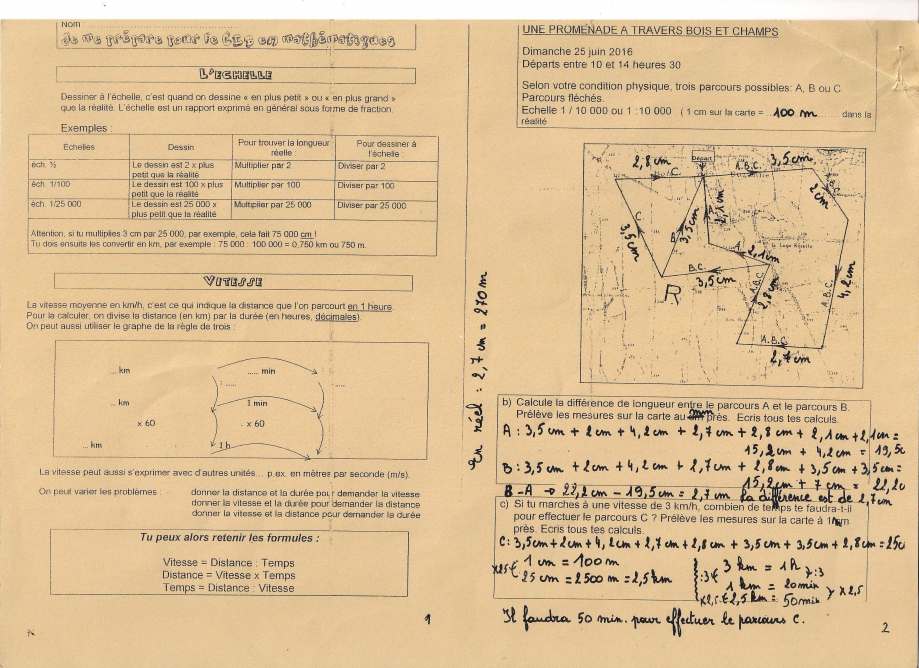 Nom
Je me prépare pour le CEB en mathématiques
L'ECHELLE
Dessiner à l'échelle, c'est quand on dessine « en plus petit » ou « en plus grand »
que la réalité. L'échelle est un rapport exprimé en général sous forme de fraction.
Exemples :
Echelles
Dessin
Pour trouver la longueur réelle :
Pour dessiner à l'échelle :
éch. ½
Le dessin est 2 x plus petit que la réalité
Multiplier par 2
Diviser par 2
éch. 1/100
Le dessin est 100 x plus petit que la réalité
Multiplier par 100
Diviser par 100
éch. 1/25 000
Le dessin est 25 000 x plus petit que la réalité
Multiplier par 25 000
Diviser par 25 000
Attention, si tu multiplies 3 cm par 25 000, par exemple, cela fait 75 000 cm !
Tu dois ensuite les convertir en km, par exemple : 75 000 : 100 000 = 0,750 km ou 750 m.
VITESSE
La vitesse moyenne en km/h, c'est ce qui indique la distance que l'on parcourt en 1 heure.
Pour la calculer, on divise la distance (en km) par la durée (en heures, décimales).
On peut aussi utiliser le graphe de la règle de trois :
... km
...... min
: .....
.....
... km
1 min
x 60
x 60
... km
1 h
La vitesse peut aussi s'exprimer avec d'autres unités... p.ex. en mètres par seconde (m/s).
On peut varier les problèmes :
donner la distance et la durée pour demander la vitesse
donner la vitesse et la durée pour demander la distance
donner la vitesse et la distance pour demander la durée
Tu peux alors retenir les formules :
Vitesse = Distance : Temps
Distance = Vitesse x Temps
Temps = Distance : Vitesse
1
En réel : 2,7 cm = 270 m
UNE PROMENADE A TRAVERS BOIS ET CHAMPS
Dimanche 25 juin 2016
Départs entre 10 et 14 heures 30
Selon votre condition physique, trois parcours possibles: A, B ou C
Parcours fléchés.
Echelle 1 / 10 000 ou 1 :10 000 ( 1 cm sur la carte = 100 m dans la
réalité
Départ
2,8 cm
C.
A.B.C.
3,5 cm
A.B.C.
2 cm
C
3,5 cm
B
3,5 cm
A
2,1 cm
A
2,1 cm
B.C.
3,5 cm
A.B.C.
2,8 cm
A.B.C.
4,2 cm
R
A.B.C.
2,7 cm
b) Calcule la différence de longueur entre le parcours A et le parcours B.
Prélève les mesures sur la carte au mm près. Ecris tous tes calculs.
A : 3,5 cm + 2 cm + 4,2 cm + 2,7 cm + 2,8 cm + 2,1 cm + 2,1 cm =
15,2 cm + 4,2 cm = 19,5c
B : 3,5 cm + 2 cm + 4,2 cm + 2,7 cm + 2,8 cm + 3,5 cm + 3,5 cm =
15,2 cm + 7 cm = 22,2c
B - A → 22,2 cm - 19,5 cm = 2,7 cm La différence est de 2,7 cm
c) Si tu marches à une vitesse de 3 km/h, combien de temps te faudra-t-il
pour effectuer le parcours C ? Prélève les mesures sur la carte à 1mm
près. Ecris tous tes calculs.
C : 3,5cm + 2cm + 4,2cm + 2,7cm + 2,8cm + 3,5cm + 3,5cm + 2,8cm = 25c
1 cm = 100 m
x25
25 cm = 2500 m = 2,5 km
3 km = 1h
:3
:3
1 km = 20 min
x2,5
2,5 km = 50 min
x2,5
Il faudra 50 min. pour effectuer le parcours C.
2